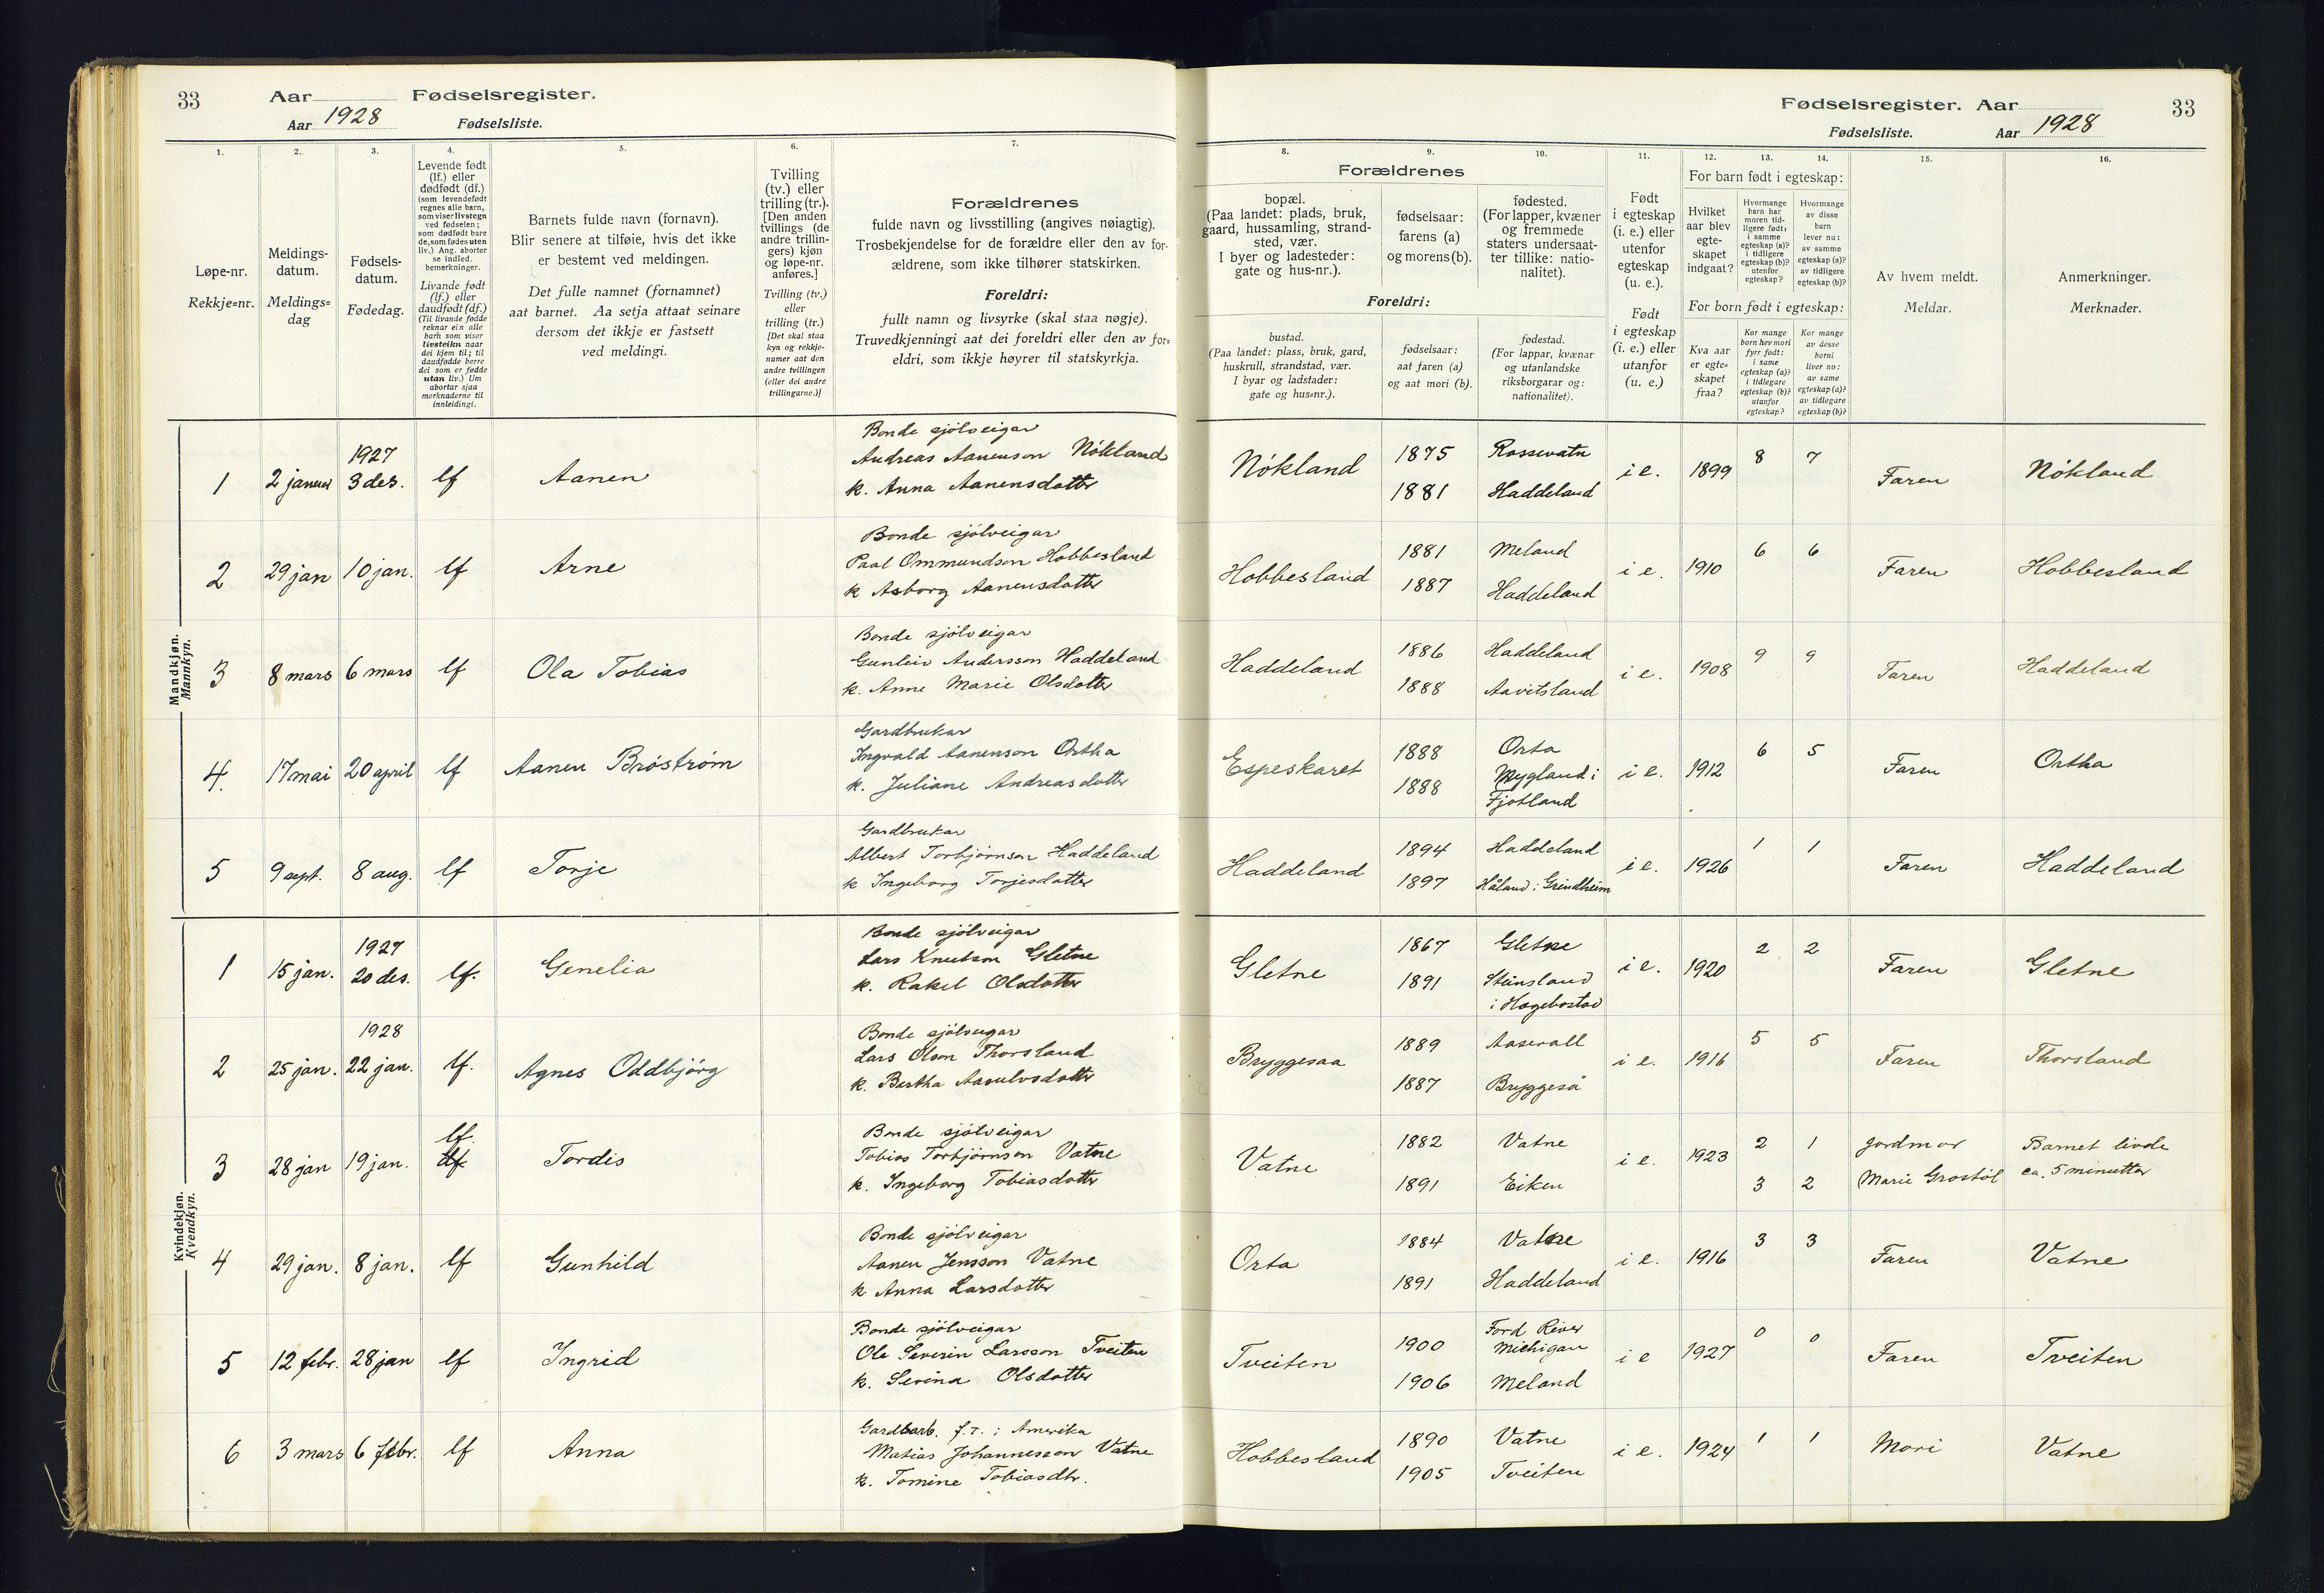 33
Aar Fødselsregister.
Aar 1928 Fødselsliste.
Fødselsregister. Aar
33
Fødselsliste. Aar 1928
1.
Løpe-nr.
Rekkje=nr.
2.
Meldings-
datum.
Meldings=
dag
3.
Fødsels-
datum.
Fødedag.
4.
Levende født
(lf.) eller
dødfødt (df.)
(som levendefødt
regnes alle barn,
som viser livstegn
ved fødselen;
som dødfødt bare
de, som fødes uten
liv.) Ang. aborter
se indled.
bemerkninger.
Livande født
(lf.) eller
daudfødt (df.)
(Til livande fødde
reknar ein alle
barn som viser
livsteikn naar
dei kjem til; til
daudfødde berre
dei som er fødde
utan liv.) Um
abortar sjaa
merknaderne til
innleidingi.
5.
Barnets fulde navn (fornavn).
Blir senere at tilføie, hvis det ikke
er bestemt ved meldingen.
Det fulle namnet (fornamnet)
aat barnet. Aa setja attaat seinare
dersom det ikkje er fastsett
ved meldingi.
6.
Tvilling
(tv.) eller
trilling (tr.).
[Den anden
tvillings (de
andre trillin-
gers) kjøn
og løpe-nr.
anføres.]
Tvilling (tv.)
eller
trilling (tr.)
[Det skal staa
kyn og rekkje-
numer aat den
andre tvillingen
(eller dei andre
trillingarne.)]
7.
Forældrenes
fulde navn og livsstilling (angives nøiagtig).
Trosbekjendelse for de forældre eller den av for-
ældrene, som ikke tilhører statskirken.
Foreldri:
fullt namn og livsyrke (skal staa nøgje).
Truvedkjenningi aat dei foreldri eller den av for=
eldri, som ikkje høyrer til statskyrkja.
8.
9.
10.
Forældrenes
bopæl.
(Paa landet: plads, bruk,
gaard, hussamling, strand-
sted, vær.
I byer og ladesteder:
gate og hus-nr.).
fødselsaar:
farens (a)
og morens (b).
fødested.
(For lapper, kvæner
og fremmede
staters undersaat-
ter tillike: natio-
nalitet).
Foreldri:
bustad.
(Paa landet: plass, bruk, gard,
huskrull, strandstad, vær.
I byar og ladstader:
gate og hus=nr.).
fødselsaar:
aat faren (a)
og aat mori (b).
fødestad.
(For lappar, kvænar
og utanlandske
riksborgarar og:
nationalitet).
11.
Født
i egteskap
(i. e.) eller
utenfor
egteskap
(u. e.).
Født
i egteskap
(i. e.) eller
utanfor
(u. e.)
12.
13.
14.
For barn født i egteskap:
Hvilket
aar blev
egte-
skapet
indgaat?
Hvormange
barn har
moren tid-
ligere født:
i samme
egteskap (a)?
i tidligere
egteskap (b)?
utenfor
egteskap?
Hvormange
av disse
barn
lever nu:
av samme
egteskap (a)?
av tidligere
egteskap (b)?
For born født i egteskap:
Kva aar
er egte=
skapet
fraa?
Kor mange
born hev mori
fyrr født:
i same
egteskap (a)?
i tidlegare
egteskap (b)?
utanfor
egteskap?
Kor mange
av desse
borni
liver no:
av same
egteskap (a)?
av tidlegare
egteskap (b)?
15.
Av hvem meldt.
Meldar.
16.
Anmerkninger.
Merknader.
Mandkjøn.
Mannkyn.
1 2 januar 1927 3 des. lf Aanen
Bonde sjölveigar
Andreas Aanenson Nökland
k. Anna Aanensdotter
Nökland 1875 Rossevatn
1881 Haddeland
i e. 1899 8 7 Faren Nökland
2 29 jan 10 jan. lf Arne
Bonde sjölveigar
Paal Ommundson Hobbesland
k Asborg Aanensdotter
Hobbesland 1881 Meland
1887 Haddeland
i e. 1910 6 6 Faren Hobbesland
3 8 mars 6 mars lf Ola Tobias
Bonde sjölveigar
Gunleiv Andersson Haddeland
k. Anne Marie Olsdotter
Haddeland 1886 Haddeland
1888 Aavitsland
i e. 1908 9 9 Faren Haddeland
4. 17 mai 20 april lf Aanen Bröström
Gardbrukar
Ingvald Aanenson Ortha
k. Juliane Andreasdotter
Espeskaret 1888 Orta
1888 Mygland i
Fjotland
i e. 1912 6 5 Faren Ortha
5 9 sept. 8 aug. lf Torje
Gardbrukar
Albert Torbjörnson Haddeland
k Ingeborg Torjesdotter
Haddeland 1894 Haddeland
1897 Håland i Grindheim
i e. 1926 1 1 Faren Haddeland
Kvindekjøn.
Kvendkyn.
1 15 jan. 1927 20 des. lf. Genelia
Bonde sjölveigar
Lars Knutson Gletne
k. Rakel Olsdotter
Gletne 1867 Gletne
1891 Steinsland
i Hægebostad
i e. 1920 2 2 Faren Gletne
2 25 jan. 1928 22 jan. lf. Agnes Oddbjörg
Bonde sjölveigar
Lars Olson Thorsland
k. Bertha Aasulvsdotter
Bryggesaa 1889 Aaserall
1887 Bryggeså
i e. 1916 5 5 Faren Thorsland
3 28 jan 19 jan. lf. df. Tordis
Bonde sjölveigar
Tobias Torbjörnson Vatne
k. Ingeborg Tobiasdotter
Vatne 1882 Vatne
1891 Eiken
i e. 1923 2 1 jordmor Barnet livde
3 2 Marie Grostöl ca. 5 minutter
4 29 jan. 8 jan. lf Gunhild
Bonde sjölveigar
Aanen Jensson Vatne
k Anna Larsdotter
Orta 1884 Vatne
1891 Haddeland
i e. 1916 3 3 Faren Vatne
5 12 febr. 28 jan lf Ingrid
Bonde sjölveigar
Ole Severin Larsson Tveiten
k. Serina Olsdotter
Tveiten 1900 Ford River
Michigan
1906 Meland
i e 1927 0 0 Faren Tveiten
6 3 mars 6 febr. lf Anna
Gardbarb. f.T. i Amerika
Matias Johannesson Vatne
k. Tomine Tobiasdtr.
Hobbesland 1890 Vatne
1905 Tveiten
i e. 1924 1 1 Mori Vatne